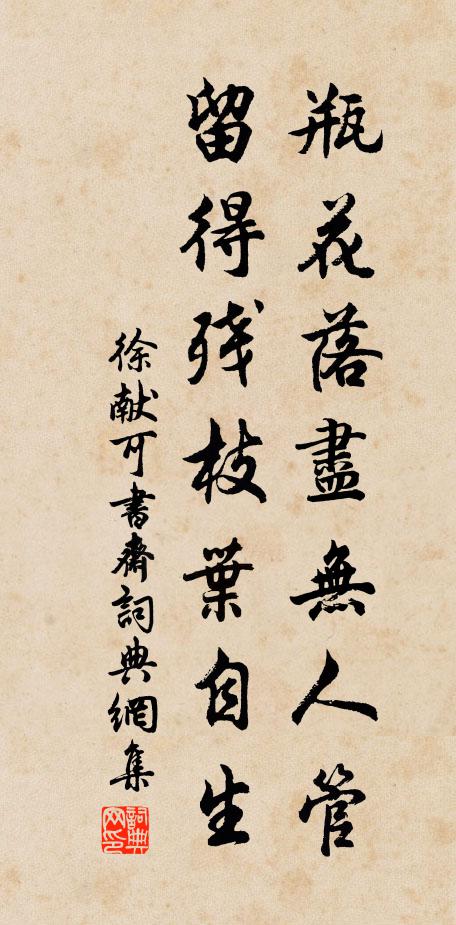 瓶花落盡無人管
留得残枝葉自生
徐献可書齋詞典網集
詞典网印